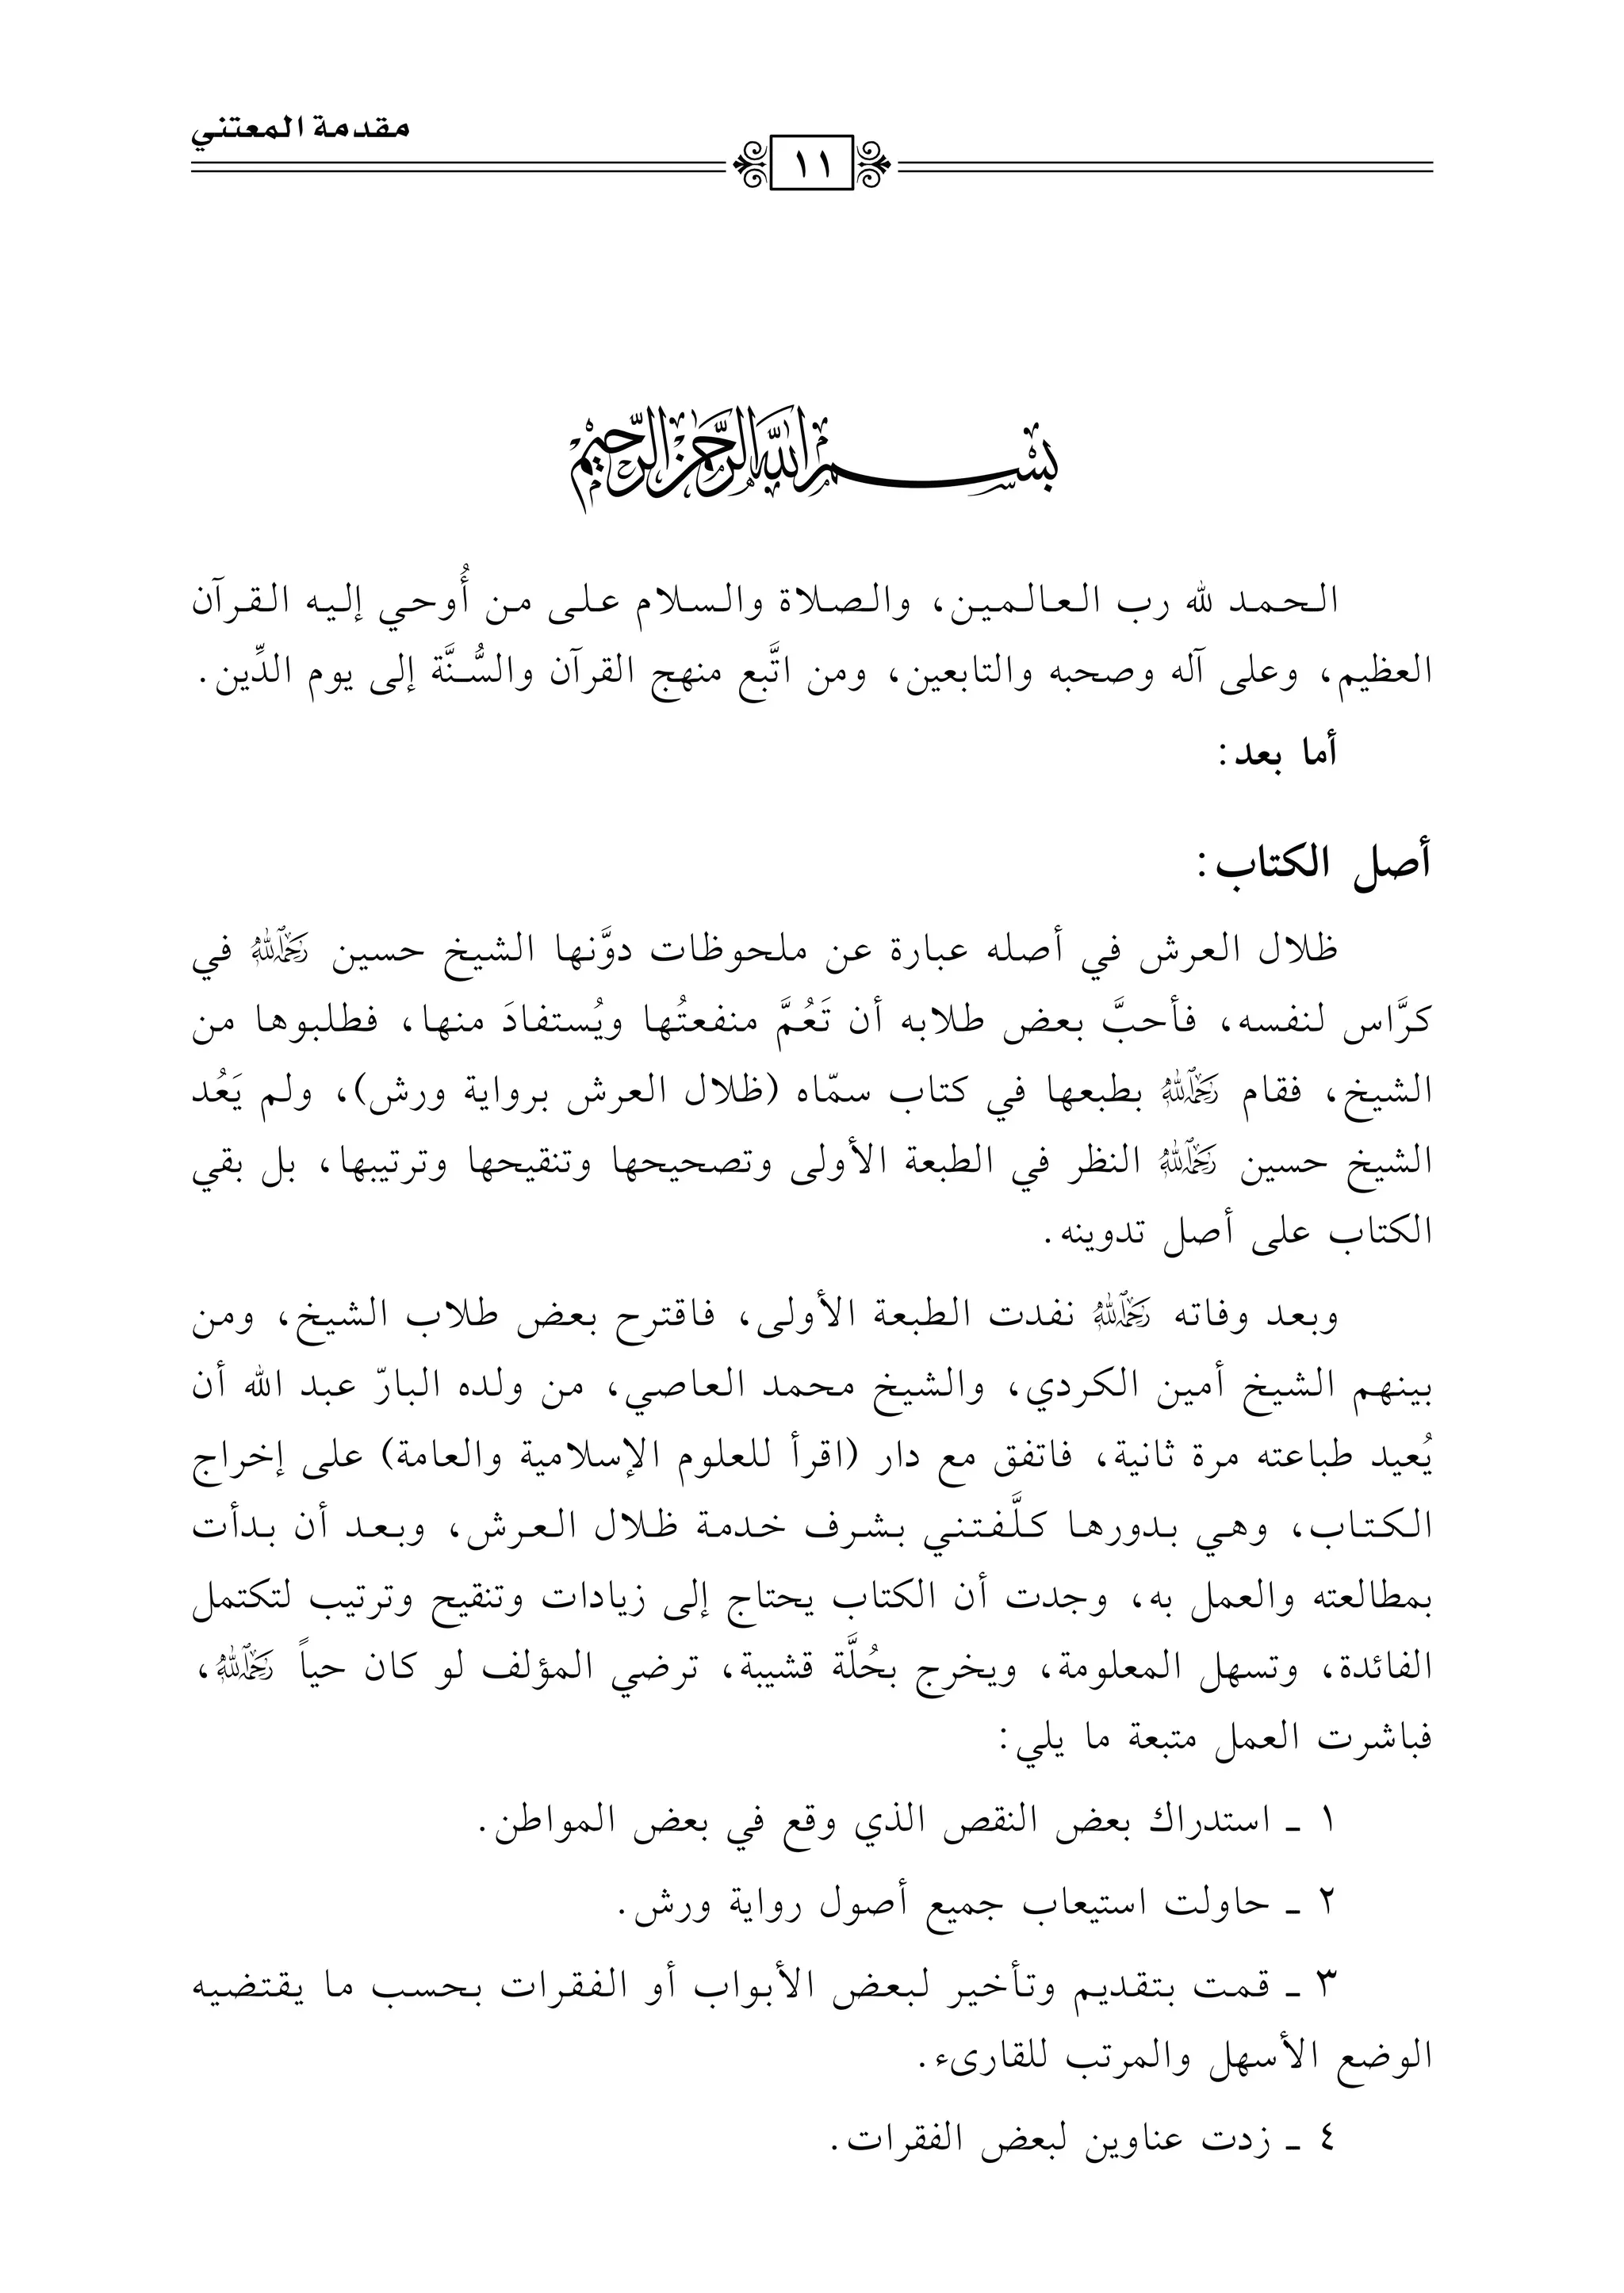 مقدمة المعتني
١١
بسم الله الرحمن الرحيم
الحمد لله رب العالمين، والصلاة والسلام على من أُوحي إليه القرآن
العظيم، وعلى آله وصحبه والتابعين، ومن اتَّبع منهج القرآن والسُّنَّة إلى يوم الدِّين.
أما بعد:
أصل الكتاب:
ظلال العرش في أصله عبارة عن ملحوظات دوَّنها الشيخ حسين رحمه الله في
كرَّاس لنفسه، فأحبَّ بعض طلابه أن تَعُمَّ منفعتُها ويُستفادَ منها، فطلبوها من
الشيخ، فقام رحمه الله بطبعها في كتاب سمّاه (ظلال العرش برواية ورش)، ولم يَعُد
الشيخ حسين رحمه الله النظر في الطبعة الأولى وتصحيحها وتنقيحها وترتيبها، بل بقي
الكتاب على أصل تدوينه.
وبعد وفاته رحمه الله نفدت الطبعة الأولى، فاقترح بعض طلاب الشيخ، ومن
بينهم الشيخ أمين الكردي، والشيخ محمد العاصي، من ولده البارّ عبد الله أن
يُعيد طباعته مرة ثانية، فاتفق مع دار (اقرأ للعلوم الإسلامية والعامة) على إخراج
الكتاب، وهي بدورها كلَّفتني بشرف خدمة ظلال العرش، وبعد أن بدأت
بمطالعته والعمل به، وجدت أن الكتاب يحتاج إلى زيادات وتنقيح وترتيب لتكتمل
الفائدة، وتسهل المعلومة، ويخرج بحُلَّة قشيبة، ترضي المؤلف لو كان حياً رحمه الله،
فباشرت العمل متبعة ما يلي:
١ ـ استدراك بعض النقص الذي وقع في بعض المواطن.
٢ ـ حاولت استيعاب جميع أصول رواية ورش.
٣ ـ قمت بتقديم وتأخير لبعض الأبواب أو الفقرات بحسب ما يقتضيه
الوضع الأسهل والمرتب للقارىء.
٤ ـ زدت عناوين لبعض الفقرات.